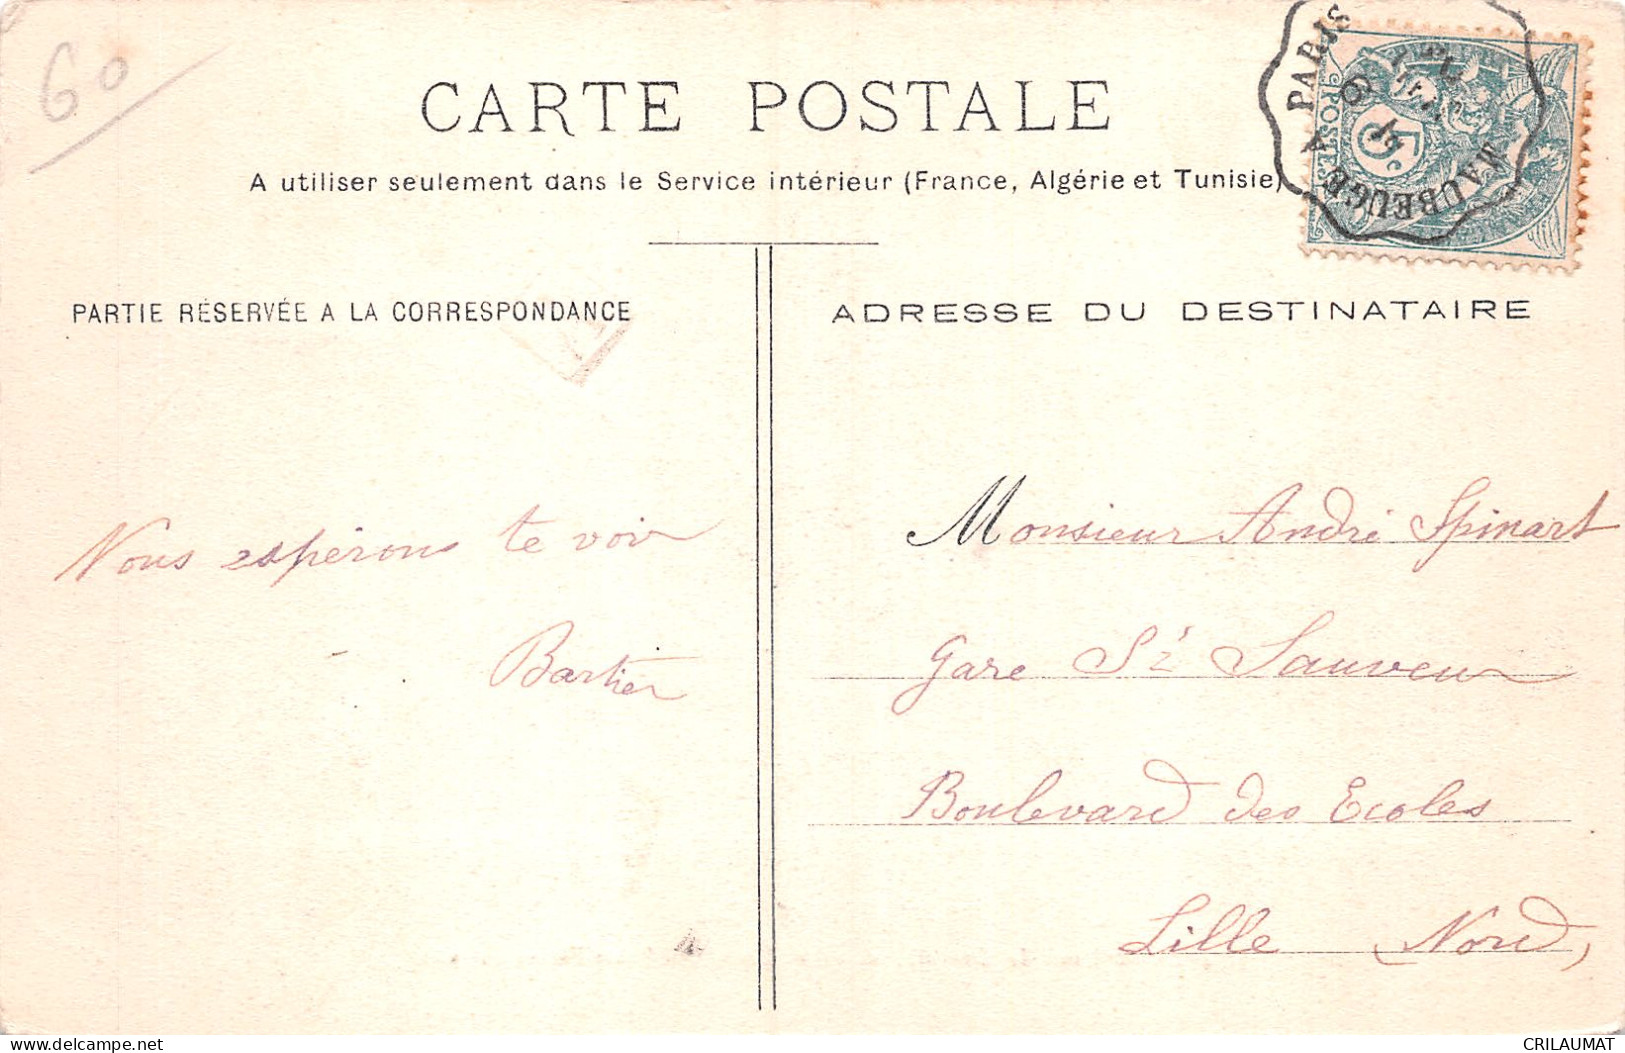 60
CARTE POSTALE
A utiliser seulement dans le Service intérieur (France, Algérie et Tunisie)
MAUBEUGE A PARIS
POSTES
5
PARTIE RÉSERVÉE A LA CORRESPONDANCE
ADRESSE DU DESTINATAIRE
Nous espérons te voir
Bartier
Monsieur André Spinart
Gare St Sauveur
Boulevard des Ecoles
Lille (Nord)
delcampe.net
CRILAUMAT